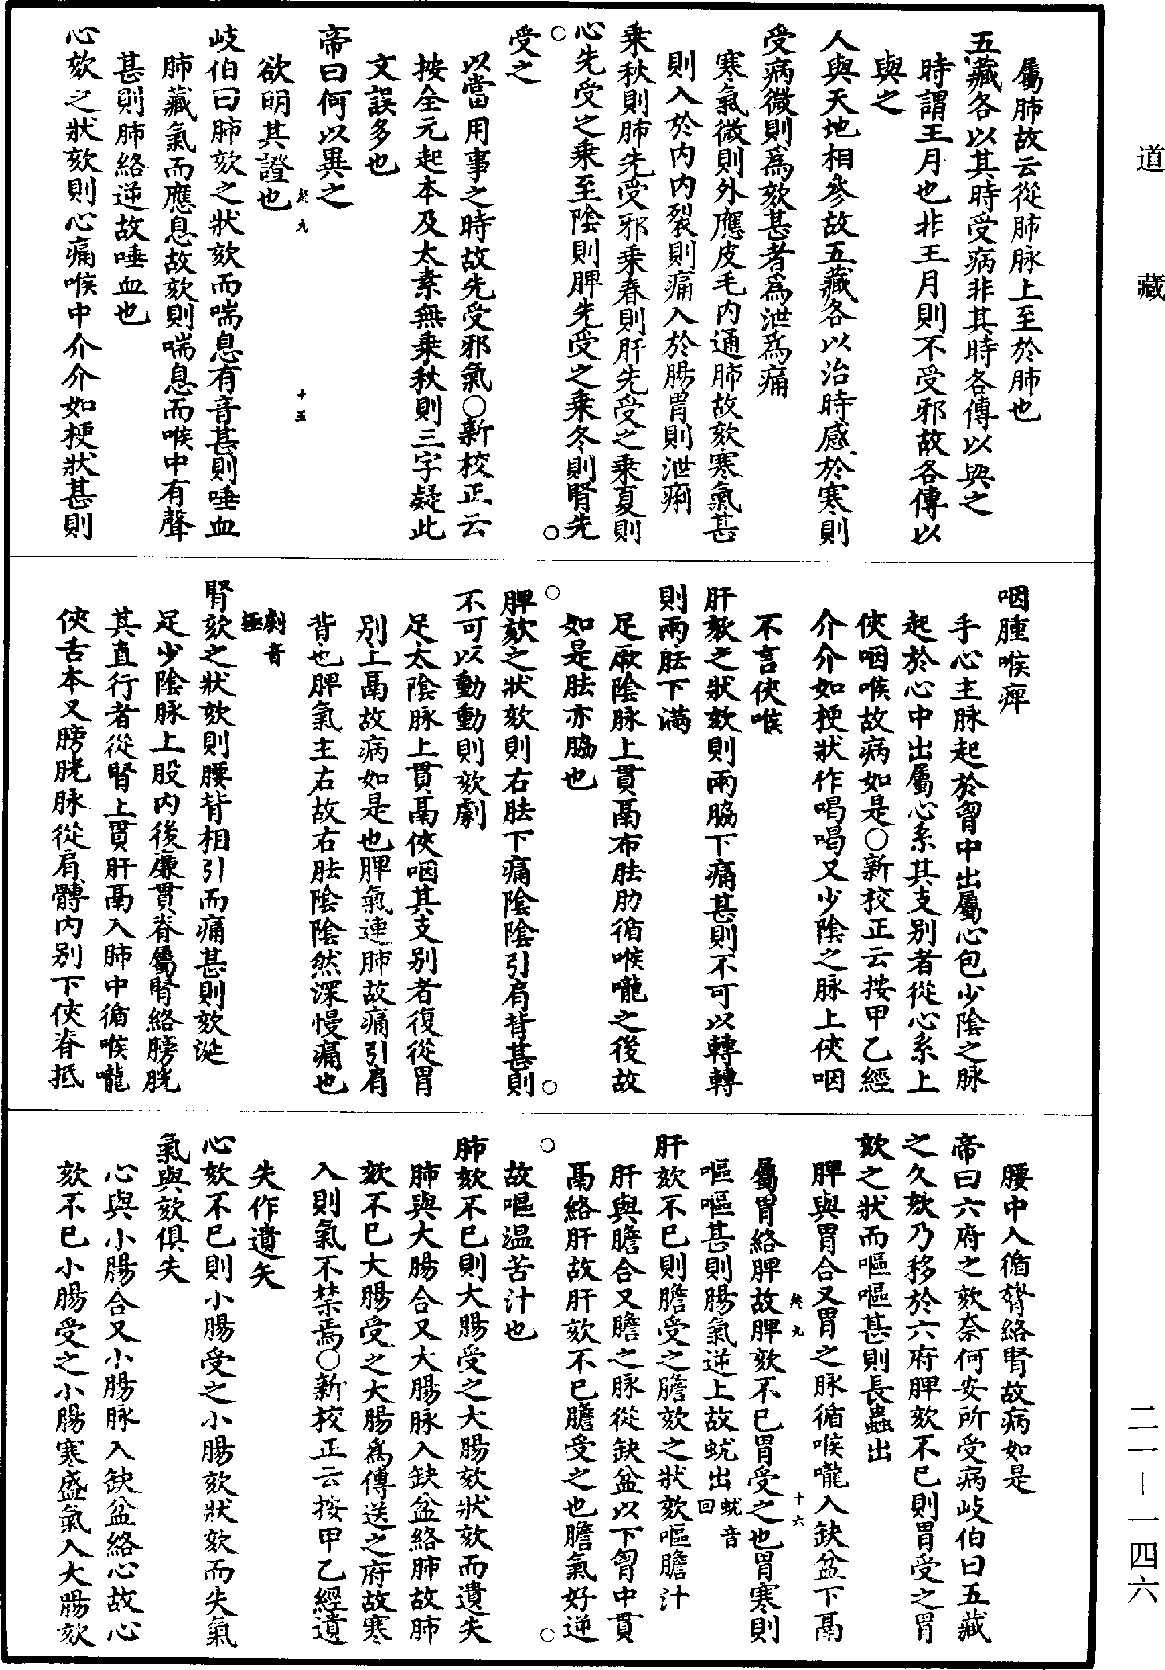 道藏
屬肺故云從肺脉上至於肺也
五藏各以其時受病非其時各傳以與之
時謂王月也非王月則不受邪故各傳以
與之
人與天地相參故五藏各以治時感於寒則
受病微則爲欬甚者爲泄爲痛
寒氣微則外應皮毛内通肺故欬寒氣甚
則入於内内裂則痛入於腸胃則泄痢
乘秋則肺先受邪乘春則肝先受之乘夏則
心先受之乘至陰則脾先受之乘冬則腎先
受之
以當用事之時故先受邪氣○新校正云
按全元起本及太素無乘秋則三字疑此
文誤多也
帝曰何以異之
欲明其證也
終九 十五
岐伯曰肺欬之狀欬而喘息有音甚則唾血
肺藏氣而應息故欬則喘息而喉中有聲
甚則肺絡逆故唾血也
心欬之狀欬則心痛喉中介介如梗狀甚則
咽腫喉痺
手心主脉起於胷中出屬心包少陰之脉
起於心中出屬心系其支别者從心系上
俠咽喉故病如是○新校正云按甲乙經
介介如梗狀作喝喝又少陰之脉上俠咽
不言俠喉
肝欬之狀欬則兩脇下痛甚則不可以轉轉
則兩胠下滿
足厥陰脉上貫鬲布胠肋循喉嚨之後故
如是胠亦脇也
脾欬之狀欬則右胠下痛陰陰引肩背甚則
不可以動動則欬劇
足太陰脉上貫鬲俠咽其支别者復從胃
别上鬲故病如是也脾氣連肺故痛引肩
背也脾氣主右故右胠陰陰然深慢痛也
劇音
極
腎欬之狀欬則腰背相引而痛甚則欬涎
足少陰脉上股内後廉貫脊屬腎絡膀胱
其直行者從腎上貫肝鬲入肺中循喉嚨
俠舌本又膀胱脉從肩髆内别下俠脊抵
腰中入循膂絡腎故病如是
帝曰六府之欬奈何安所受病岐伯曰五藏
之久欬乃移於六府脾欬不已則胃受之胃
欬之狀欬而嘔嘔甚則長蟲出
脾與胃合又胃之脉循喉嚨入缺盆下鬲
屬胃絡脾故脾欬不已胃受之也胃寒則
終九 十六
嘔嘔甚則腸氣逆上故蚘出蚘音
回
肝欬不已則膽受之膽欬之狀欬嘔膽汁
肝與膽合又膽之脉從缺盆以下胷中貫
鬲絡肝故肝欬不已膽受之也膽氣好逆
故嘔温苦汁也
肺欬不已則大腸受之大腸欬狀欬而遺失
肺與大腸合又大腸脉入缺盆絡肺故肺
欬不已大腸受之大腸爲傳送之府故寒
入則氣不禁焉○新校正云按甲乙經遺
失作遺矢
心欬不已則小腸受之小腸欬狀欬而失氣
氣與欬俱失
心與小腸合又小腸脉入缺盆絡心故心
欬不已小腸受之小腸寒盛氣入大腸欬
二一—一四六